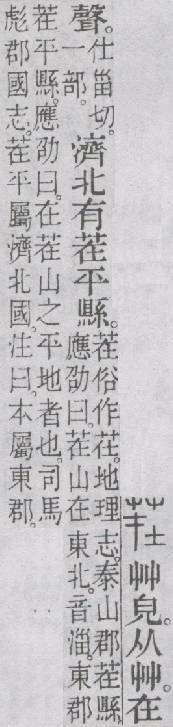 茬 艸皃。从艸。在
聲。仕甾切。一部。濟北有茬平縣。茬俗作茌。地理志。泰山郡茬縣。應劭曰。茬山在東北。音淄。東郡
茬平縣。應劭曰。在茬山之平地者也。司馬
彪郡國志。茬平屬濟北國。注曰。本屬東郡。